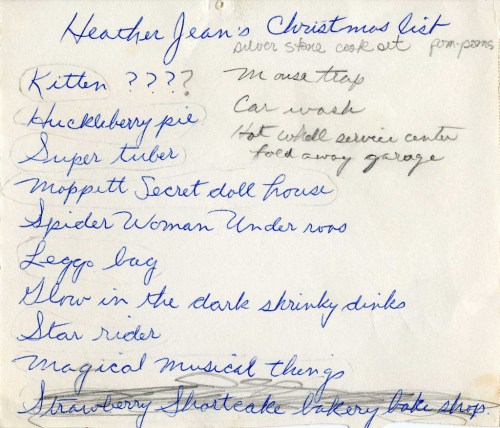 Heather Jean's Christmas list
silver stone cook set pom-poms
Kitten ???? Mouse trap
Huckleberry pie Car wash
Super tuber Hot whell service center
fold away garage
Moppett Secret doll house
Spider Woman Under roos
Leggo bag
Glow in the dark shrinky dinks
Star rider
Magical musical things
Strawberry Shortcake bakery bake shop